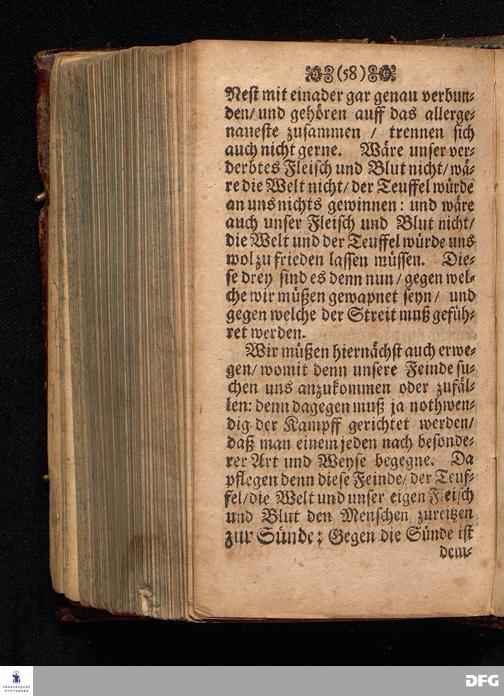 (58)
Nest mit einader gar genau verbun-
den/ und gehören auff das allerge-
naueste zusammen / trennen sich
auch nicht gerne. Wäre unser ver-
derbtes Fleisch und Blut nicht/ wä-
re die Welt nicht/ der Teuffel würde
an uns nichts gewinnen: und wäre
auch unser Fleisch und Blut nicht/
die Welt und der Teuffel würde uns
wol zu frieden lassen müssen. Die-
se drey sind es denn nun/ gegen wel-
che wir müßen gewapnet seyn/ und
gegen welche der Streit muß gefüh-
ret werden.
Wir müßen hiernächst auch erwe-
gen/ womit denn unsere Feinde su-
chen uns anzukommen oder zufäl-
len: denn dagegen muß ja nothwen-
dig der Kampff gerichtet werden/
daß man einem jeden nach besonde-
rer Art und Weyse begegne. Da
pflegen denn diese Feinde/ der Teuf-
fel/ die Welt und unser eigen Fleisch
und Blut den Menschen zureitzen
zur Sünde: Gegen die Sünde ist
dem-
FRANCKESCHE
STIFTUNGEN
DFG